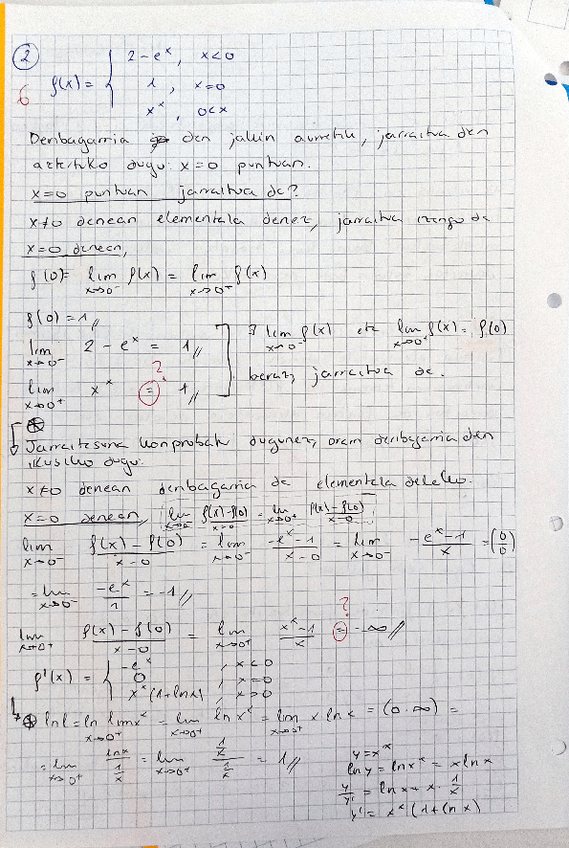 ②
6
f(x) = { 2 - e^x , x<0
1 , x=0
x^x , 0<x
Deribagarria den jakin aurretik, jarraitua den
aztertuko dugu x=0 puntuan.
x=0 puntuan jarraitua da?
x≠0 denean elementala denez, jarraitua izango da
x=0 denean,
f(0) = lim x→0⁻ f(x) = lim x→0⁺ f(x)
f(0) = 1 //
lim x→0⁻ 2 - e^x = 1 //
lim x→0⁺ x^x = 1 //
?
∃ lim x→0⁻ f(x) eta lim x→0⁺ f(x) = f(0)
beraz, jarraitua da.
⊛
Jarraitasuna konprobatu dugunez, orain deribagarria den
ikusiko dugu.
x≠0 denean deribagarria da elementala delako.
x=0 denean, lim x→0⁻ f(x)-f(0)/x-0 = lim x→0⁺ f(x)-f(0)/x-0
lim x→0⁻ f(x)-f(0)/x-0 = lim x→0⁻ -e^x-1/x-0 = lim x→0⁻ -e^x-1/x = (0/0)
= lim x→0⁻ -e^x/1 = -1 //
?
lim x→0⁺ f(x)-f(0)/x-0 = lim x→0⁺ x^x-1/x = -∞ //
f'(x) = { -e^x , x<0
0 , x=0
x^x(1+lnx) , x>0
⊛ ln l = ln lim x→0⁺ x^x = lim x→0⁺ ln x^x = lim x→0⁺ x ln x = (0·∞) =
= lim x→0⁺ lnx/(1/x) = lim x→0⁺ (1/x)/(1/x) = 1 //
y = x^x
ln y = ln x^x = x ln x
y/y' = ln x + x · 1/x
y' = x^x (1+ln x)